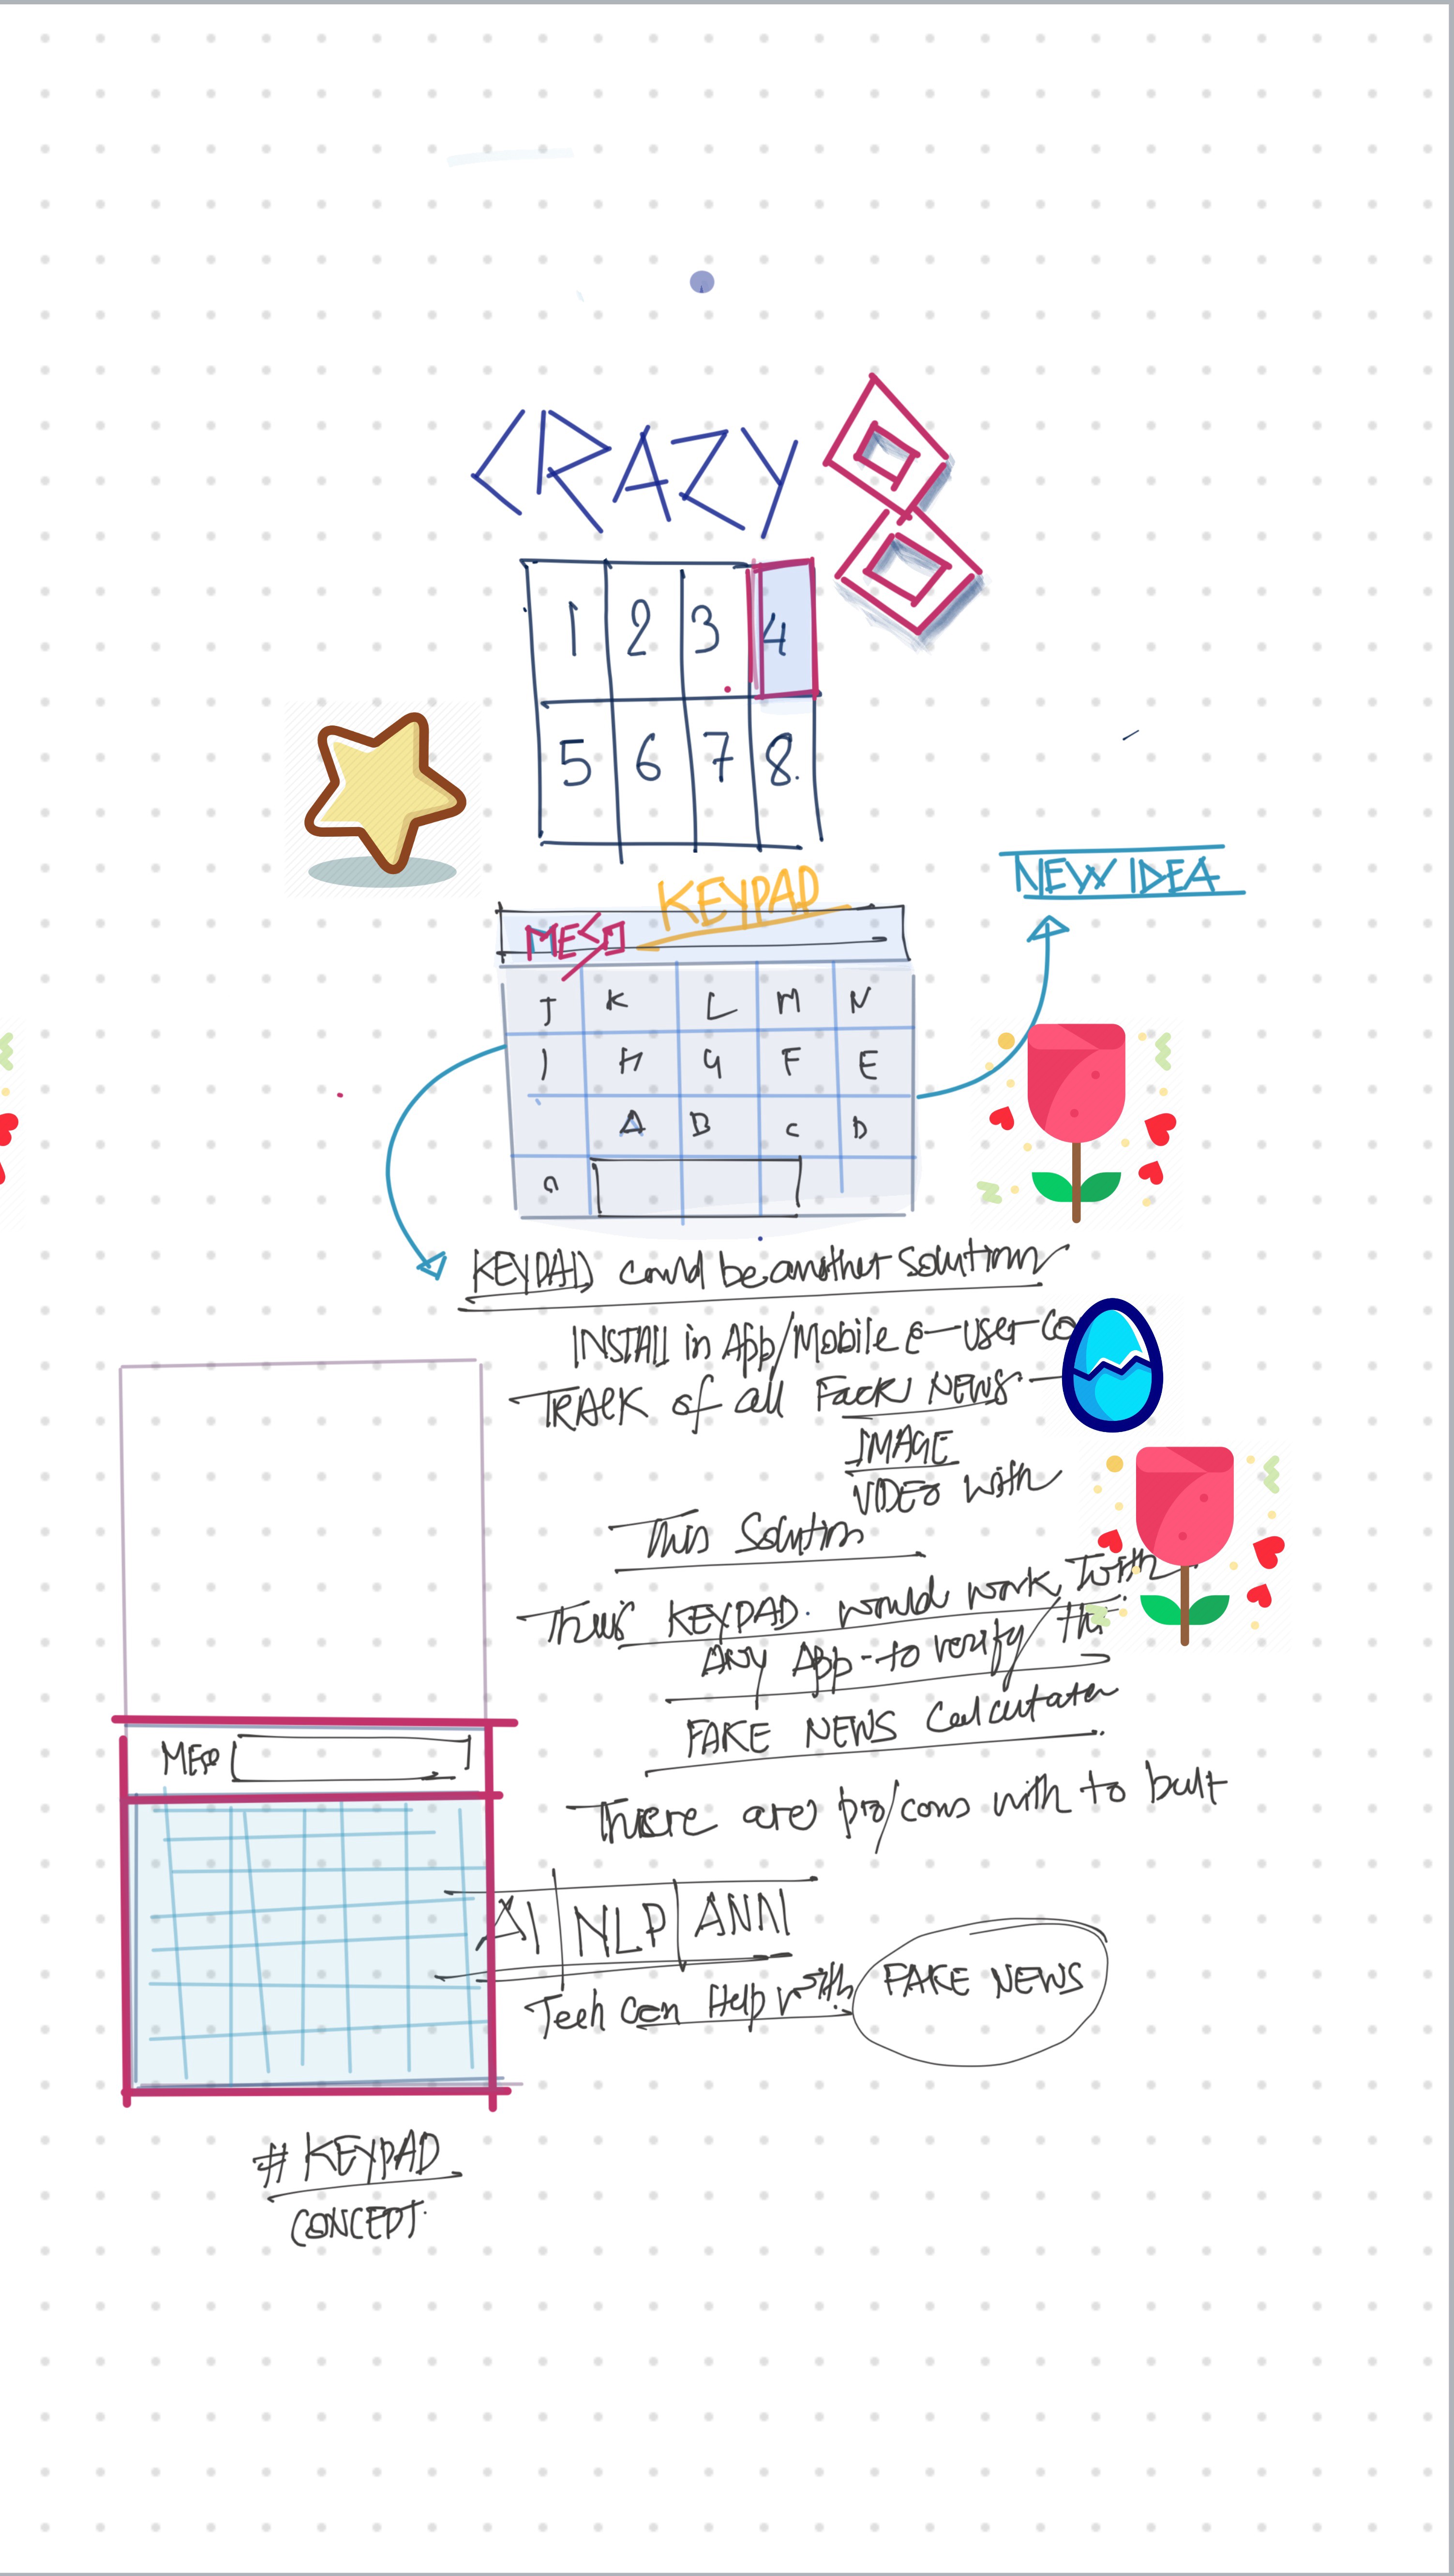 CRAZY 8
1 2 3 4
5 6 7 8
KEYPAD
NEW IDEA
J K L M N
I H G F E
A B C D
KEYPAD could be another solution
INSTALL in App/Mobile e-user
TRACK of all NEWS
IMAGE
VIDEO with
This Solution
This KEYPAD would work with
ANY App-to verify the
FAKE NEWS
There are pro/cons with to built
AI | NLP | ANN
Tech Can Help with FAKE NEWS
# KEYPAD
CONCEPT